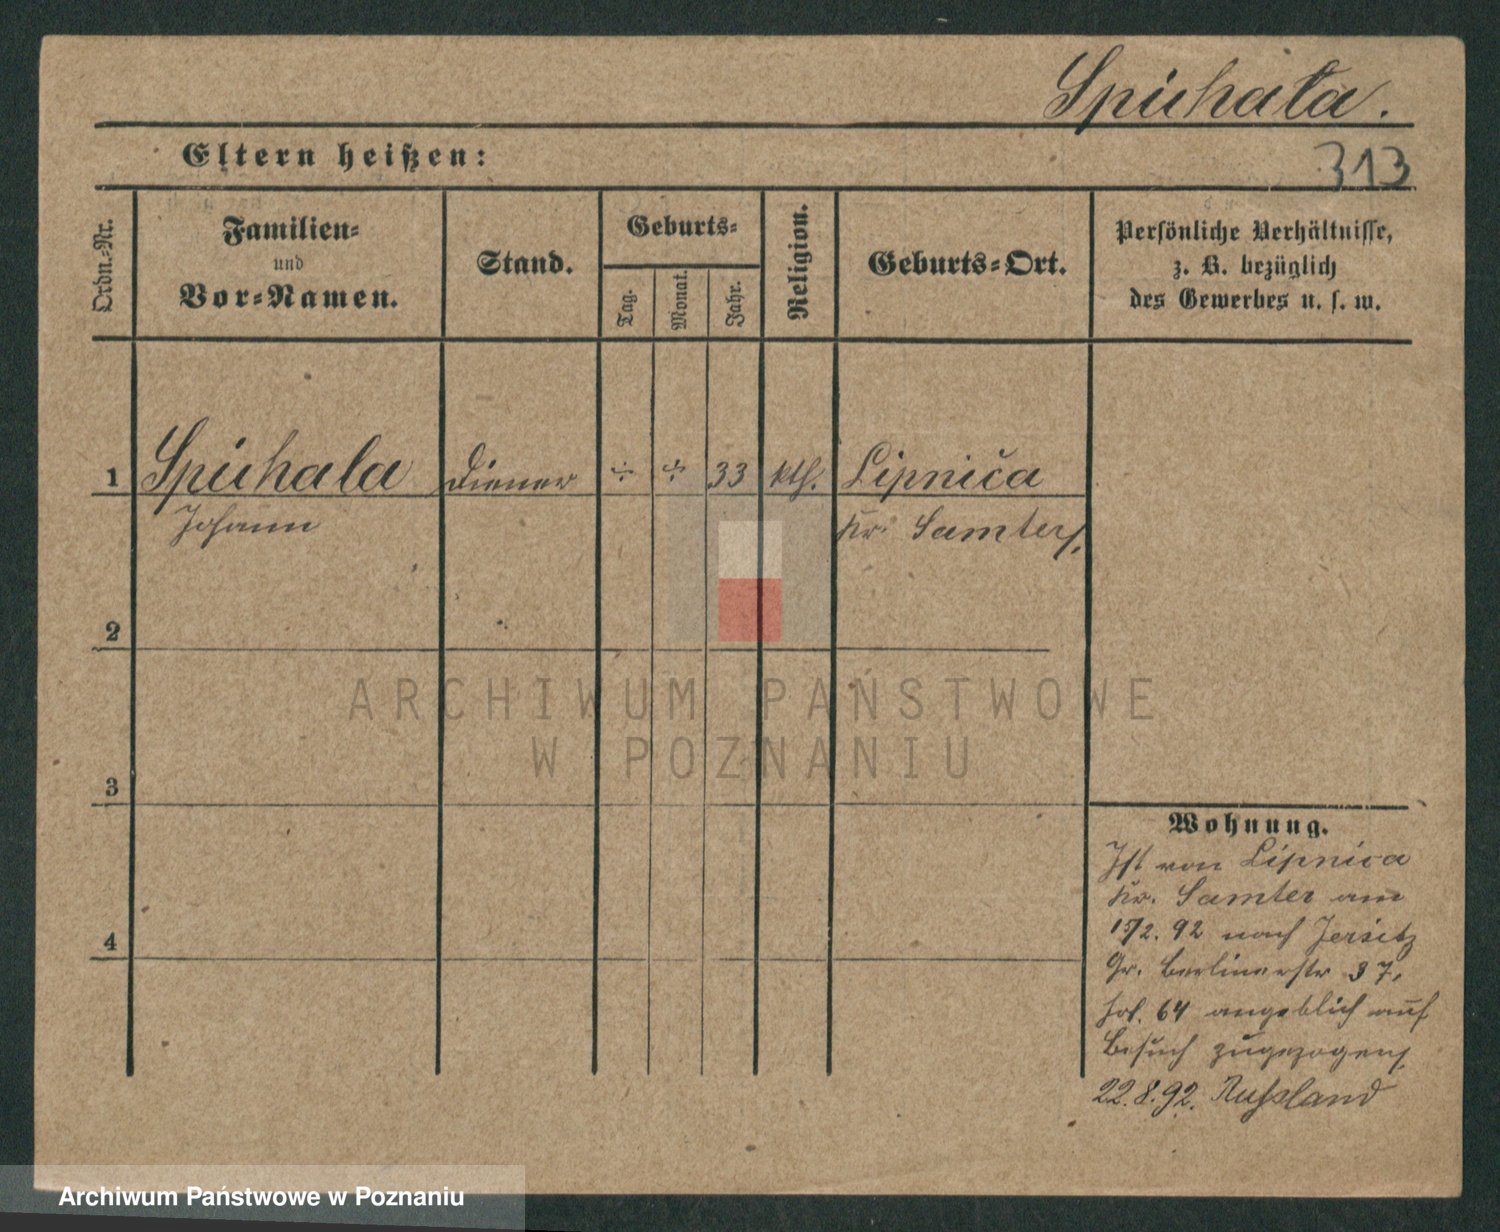 Spuhała.
Eltern heißen:
313
Ordn.-Nr.
Familien-
und
Vor-Namen.
Stand.
Geburts-
Tag.
Monat.
Jahr.
Religion.
Geburts-Ort.
Persönliche Verhältnisse,
z. B. bezüglich
des Gewerbes u. s. w.
1 Spuhala Diener ÷ ÷ 33 kth. Lipnica
Johann Kr. Samter,
2
3
4
ARCHIWUM PAŃSTWOWE
W POZNANIU
Wohnung.
Ist von Lipnica
Kr. Samter am
15/2. 92 nach Jersitz
Gr. Berlinerstr 37,
64 angeblich auf
Besuch zugezogen,
22.8.92. Russland
Archiwum Państwowe w Poznaniu